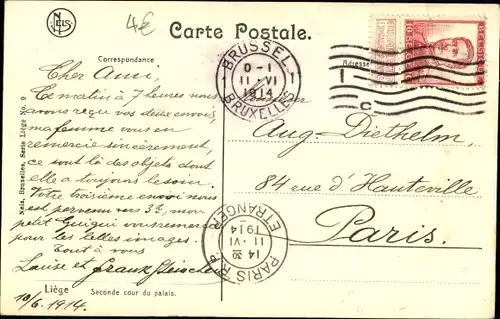 NELS
4€
Carte Postale.
Correspondance
Adresse
BRUSSEL 1
0-1
11 · VI
1914
BRUXELLES
Cher Ami,
Ce matin à 7 heures nous
avons reçu vos deux envois,
ma femme vous en
remercie sincèrement,
ce sont là des objets dont
elle a toujours besoin.
Votre troisième envoi nous
est parvenu vers 3h, mon
petit Guigui vous remercie
pour les belles images.
Tout à vous
Louise et Frank
10/6. 1914.
Monsieur
Aug. Diethelm.
84 rue d'Hauteville
Paris.
PARIS R.P.
14 30
11 · VI
1914
ETRANGER
Nels, Bruxelles, Serie Liége No. 9
Liége Seconde cour du palais.